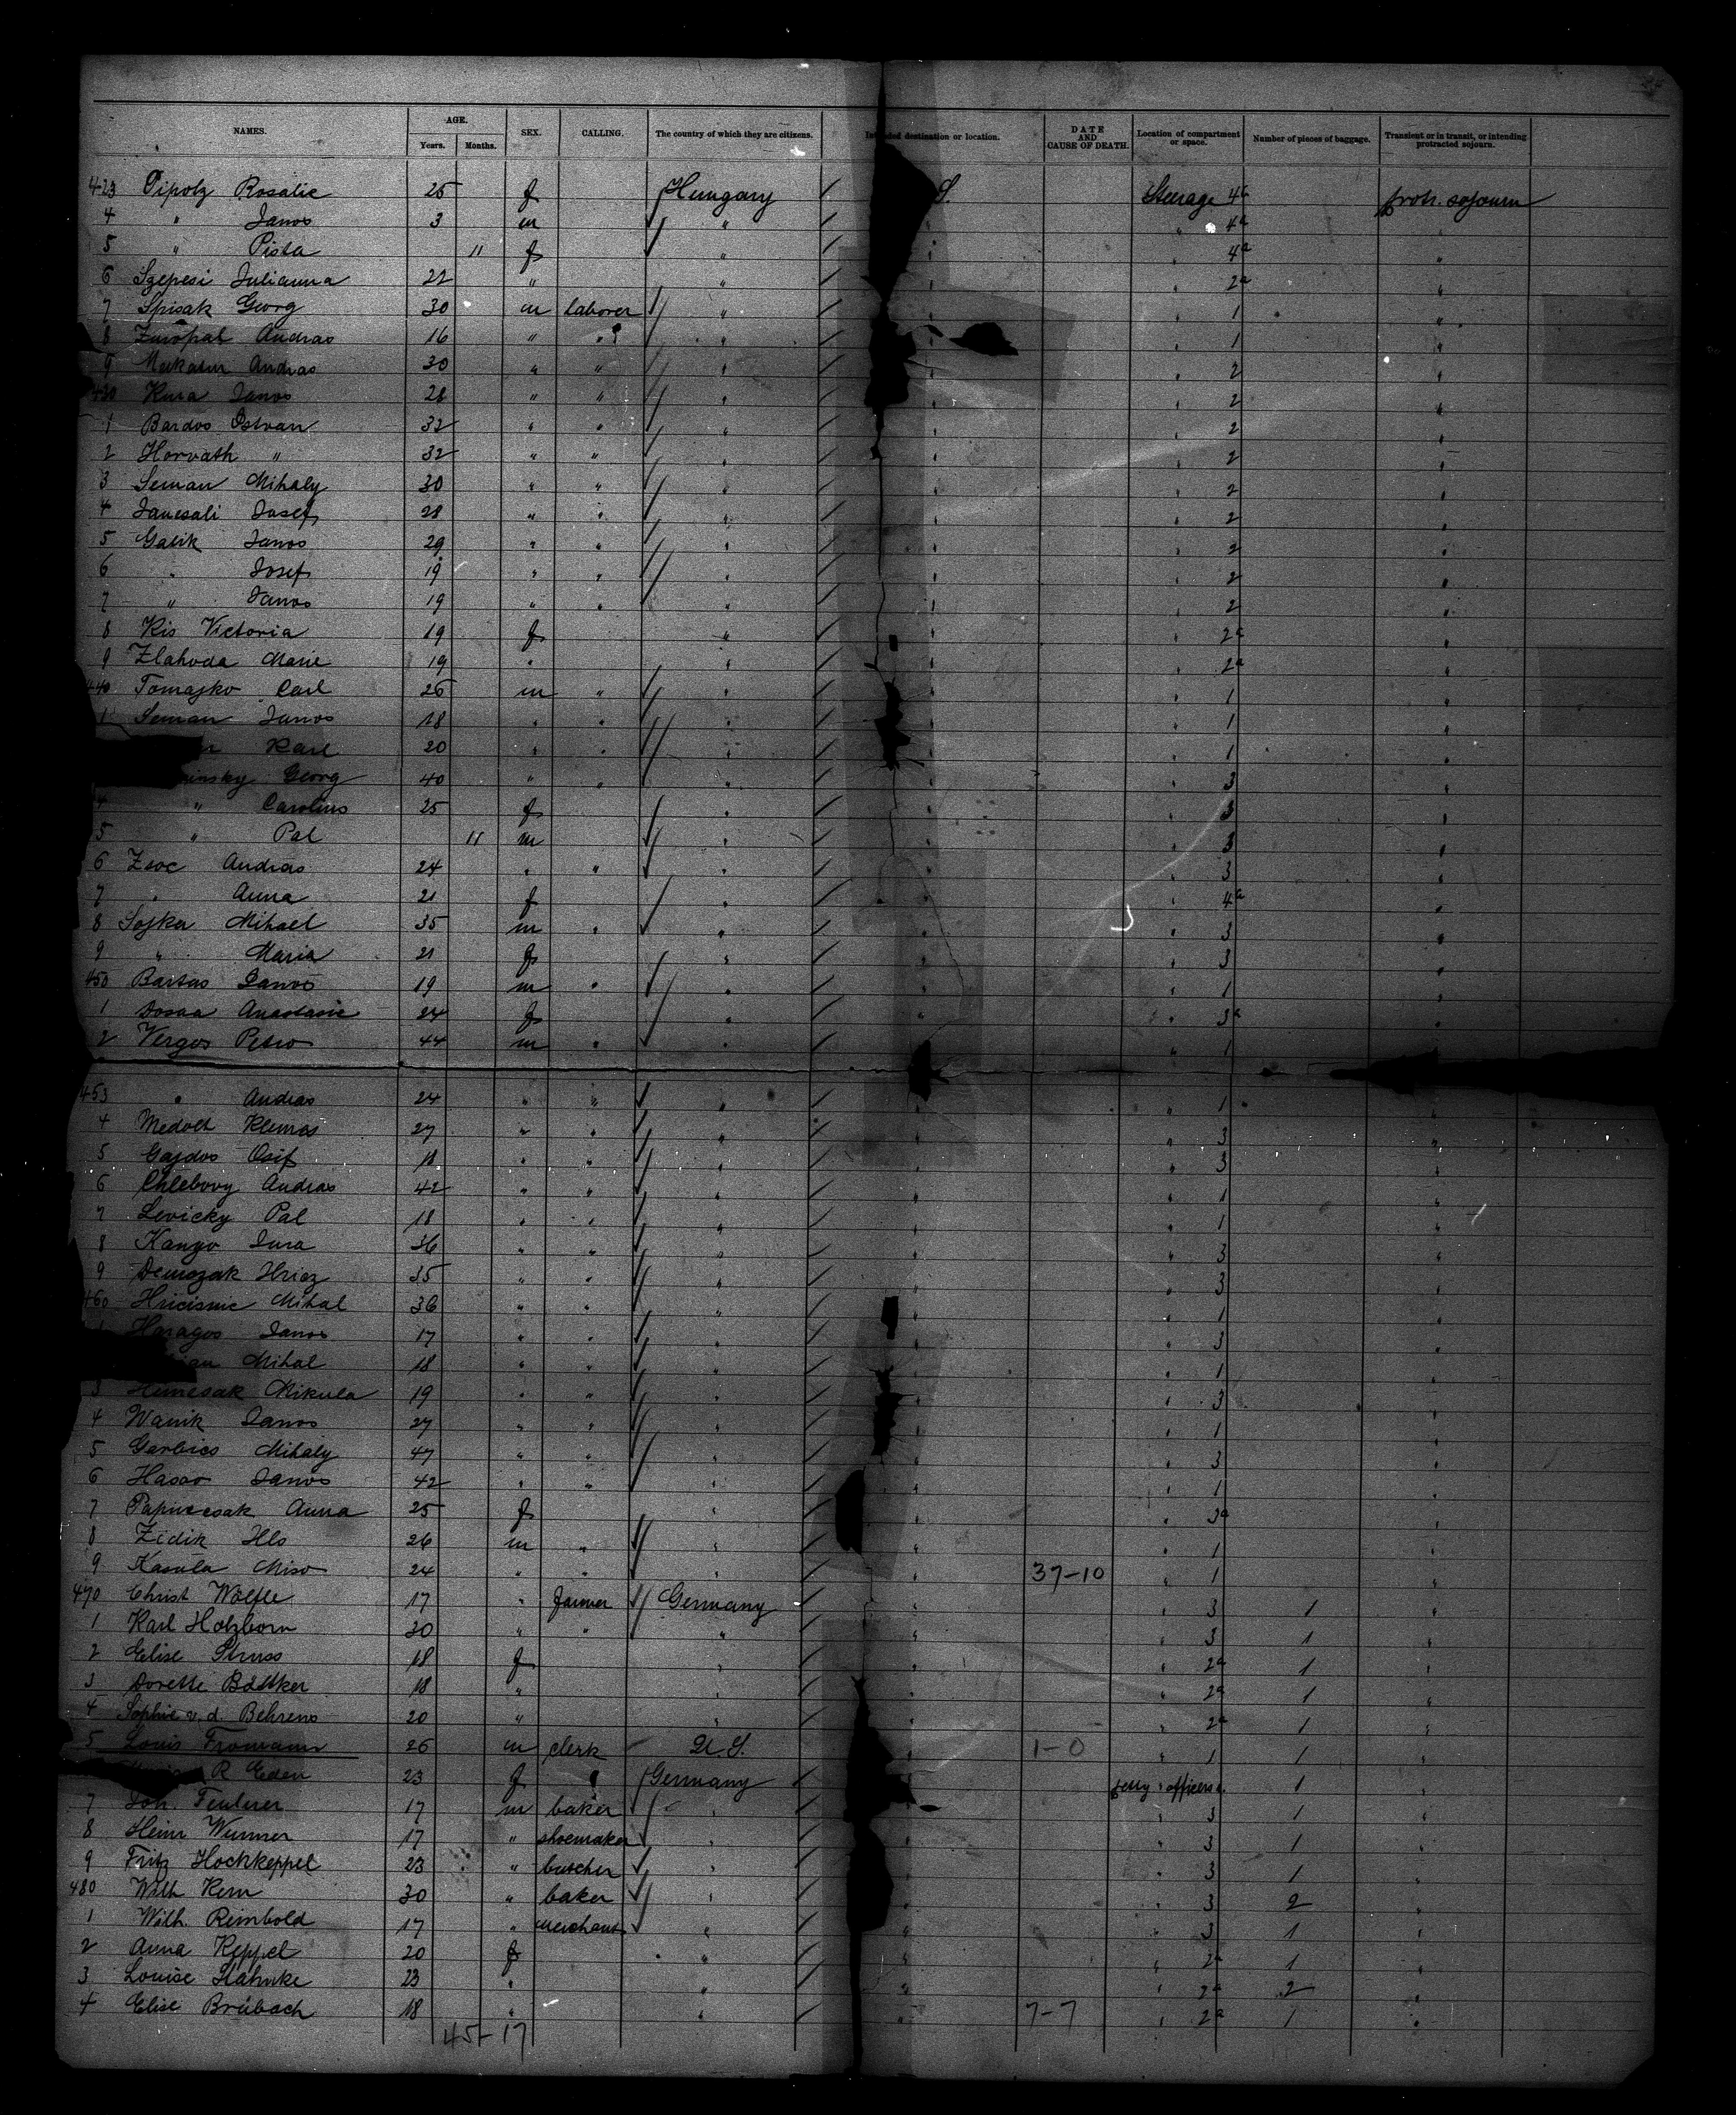 NAMES. AGE. Years. Months. SEX. CALLING. The country of which they are citizens. destination or location. DATE AND CAUSE OF DEATH. Location of compartment or space. Number of pieces of baggage. Transient or in transit, or intending protracted sojourn.
423 Pipoly Rosalie 25 f Hungary S. Steerage 4a protr. sojourn
4 " Janos 3 m " " 4a "
5 " Pista 11 f " " 4a "
6 Szepesi Julianna 22 " " " 2a "
7 Spisak Georg 30 m laborer " " 1 "
8 Andras 16 " " " " 1 "
9 Andras 30 " " " " 2 "
430 Kura Janos 28 " " " " 2 "
1 Bardos Istvan 32 " " " " 2 "
2 Horvath " 32 " " " " 2 "
3 Seman Mihaly 30 " " " " 2 "
4 Janesali Josef 28 " " " " 2 "
5 Galik Janos 29 " " " " 2 "
6 " Josef 19 " " " " 2 "
7 " Janos 19 " " " " 2 "
8 Kis Victoria 19 f " " 2a "
9 Zlahoda Marie 19 " " " 2a "
440 Tomasko Carl 26 m " " " 1 "
1 Seman Janos 18 " " " " 1 "
Karl 20 " " " " 1 "
insky Georg 40 " " " " 3 "
4 " Carolins 25 f " " 3 "
5 " Pal 11 m " " 3 "
6 Zsoc Andras 24 " " " " 3 "
7 " Anna 21 f " " 4a "
8 Sojka Mihael 35 m " " " 3 "
9 " Maria 21 f " " 3 "
450 Bartas Janos 19 m " " " 1 "
1 Dosna Anastasie 24 f " " 3a "
2 Vergos Petro 44 m " " " 1 "
453 " Andras 24 " " " " 1 "
4 Medoth Klemes 27 " " " " 3 "
5 Gajdos Osif 18 " " " " 3 "
6 Chlebovy Andras 42 " " " " 1 "
7 Levicky Pal 18 " " " " 1 "
8 Kanyo Jura 36 " " " " 3 "
9 Demozak Hricz 35 " " " " 3 "
460 Hricisnie Mihal 36 " " " " 1 "
Haragos Janos 17 " " " " 3 "
Mihal 18 " " " " 1 "
3 Hunesak Mikula 19 " " " " 3 "
4 Wanik Janos 27 " " " " 1 "
5 Garbics Mihaly 47 " " " " 3 "
6 Hasao Janos 42 " " " " 1 "
7 Papuecsak Anna 25 f " " 3a "
8 Zidik Ills 26 m " " " 1 "
9 Kasula Miso 24 " " " " 37-10 " 1 "
470 Christ Wölfle 17 " farmer Germany " 3 1 "
1 Karl Holzborn 30 " " " " 3 1 "
2 Elise Struss 18 f " " 2a 1 "
3 Dorette Böttker 18 " " " 2a 1 "
4 Sophie v. d. Behrens 20 " " " 2a 1 "
5 Louis Fromann 26 m clerk U.S. " 1-0 " 1 1 "
R Eden 23 f " Germany " petty officers 1 "
7 Joh. Feulner 17 m baker " " 3 1 "
8 Heinr Wunner 17 " shoemaker " " 3 1 "
9 Fritz Hochkeppel 23 " butcher " " 3 1 "
480 Wilh Kern 30 " baker " " 3 2 "
1 Wilh. Reimbold 17 " merchant " " 3 1 "
2 Anna Keppel 20 f " " 2a 1 "
3 Louise Hahnke 23 " " " 2a 2 "
4 Elise Brübach 18 " " " 7-7 " 2a 1 "
45-17